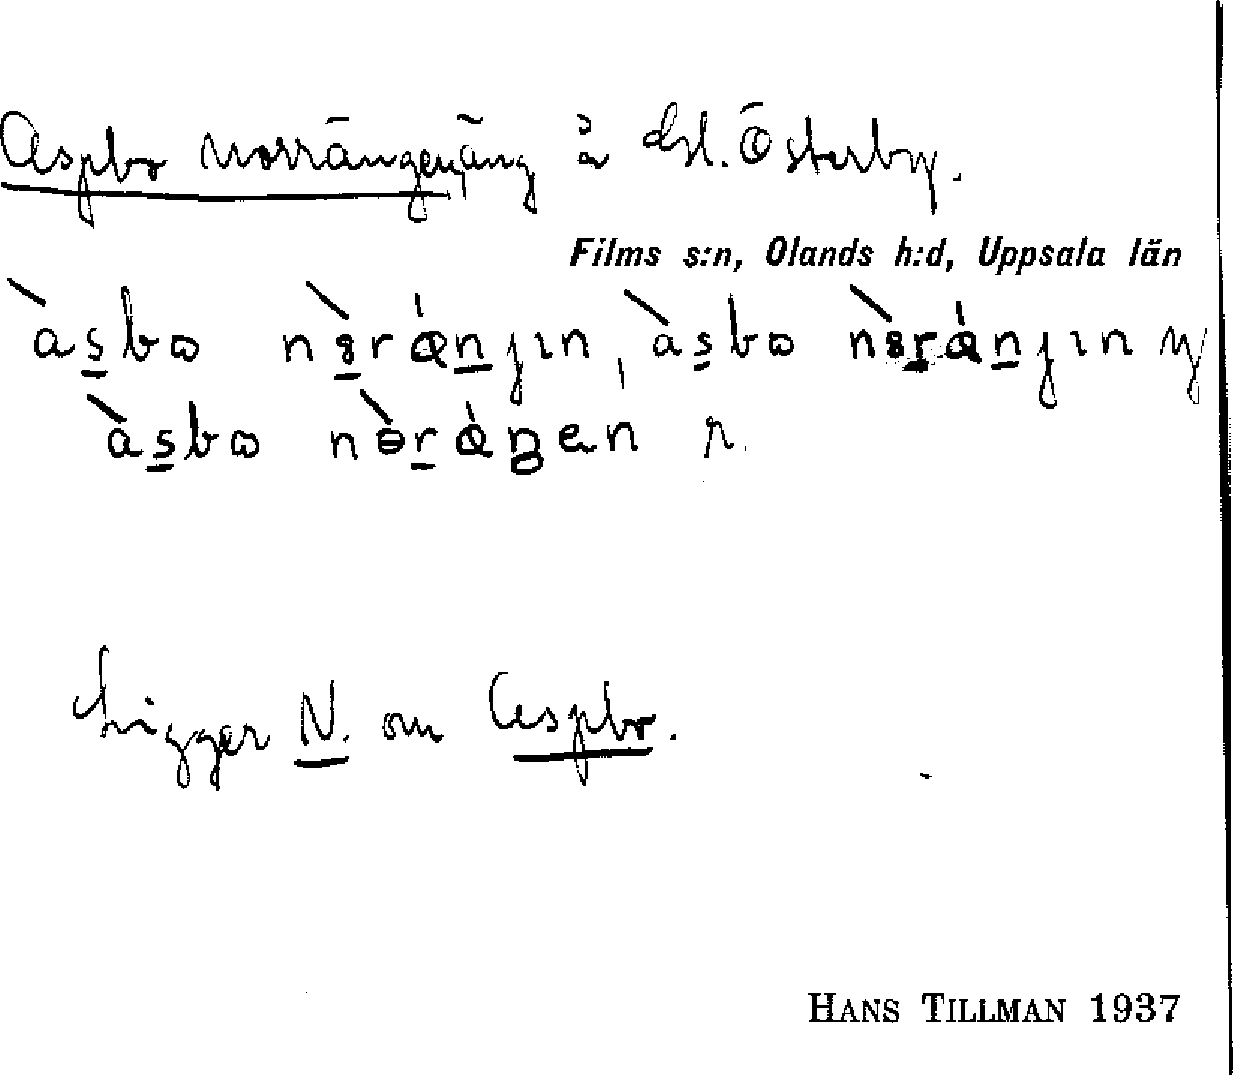 Aspbo Norrängen, äng å Dal. Österby.
Films s:n, Olands h:d, Uppsala län
àsbω nɵ̀rǽnjın, àsbω nɵ̀rǽnjın y
àsbω nɵ̀rǽŋen r.
Ligger N. om Aspbo.
HANS TILLMAN 1937